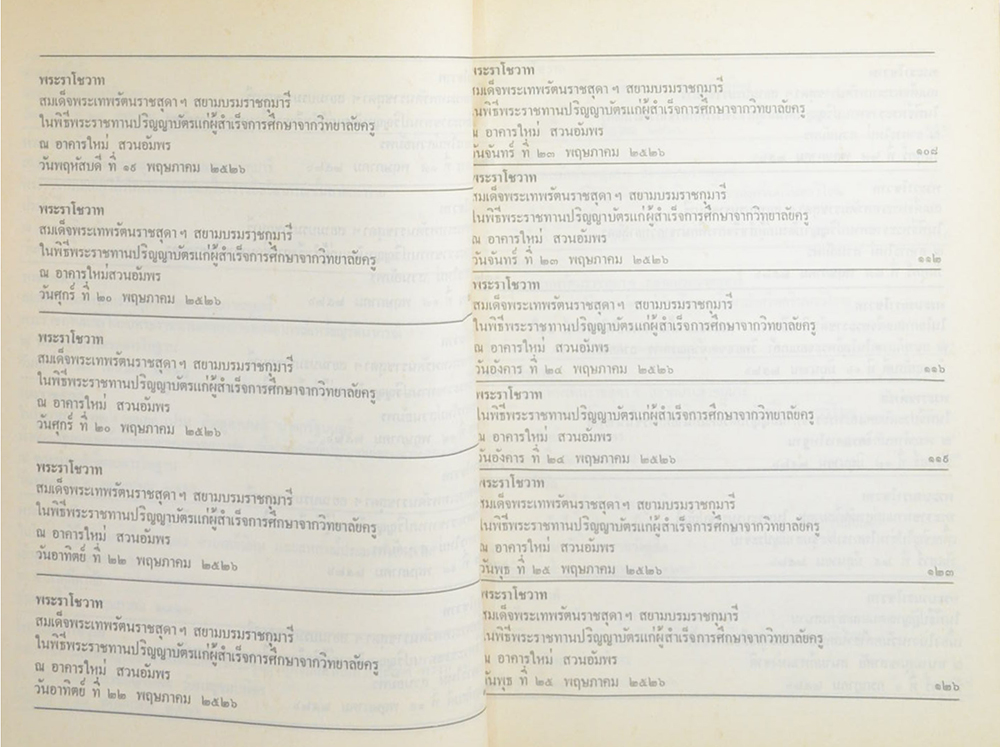 พระราโชวาท
สมเด็จพระเทพรัตนราชสุดา ฯ สยามบรมราชกุมารี
ในพิธีพระราชทานปริญญาบัตรแก่ผู้สำเร็จการศึกษาจากวิทยาลัยครู
ณ อาคารใหม่ สวนอัมพร
วันพฤหัสบดี ที่ ๑๙ พฤษภาคม ๒๕๒๖
พระราโชวาท
สมเด็จพระเทพรัตนราชสุดา ฯ สยามบรมราชกุมารี
ในพิธีพระราชทานปริญญาบัตรแก่ผู้สำเร็จการศึกษาจากวิทยาลัยครู
ณ อาคารใหม่สวนอัมพร
วันศุกร์ ที่ ๒๐ พฤษภาคม ๒๕๒๖
พระราโชวาท
สมเด็จพระเทพรัตนราชสุดา ฯ สยามบรมราชกุมารี
ในพิธีพระราชทานปริญญาบัตรแก่ผู้สำเร็จการศึกษาจากวิทยาลัยครู
ณ อาคารใหม่ สวนอัมพร
วันศุกร์ ที่ ๒๐ พฤษภาคม ๒๕๒๖
พระราโชวาท
สมเด็จพระเทพรัตนราชสุดา ฯ สยามบรมราชกุมารี
ในพิธีพระราชทานปริญญาบัตรแก่ผู้สำเร็จการศึกษาจากวิทยาลัยครู
ณ อาคารใหม่ สวนอัมพร
วันอาทิตย์ ที่ ๒๒ พฤษภาคม ๒๕๒๖
พระราโชวาท
สมเด็จพระเทพรัตนราชสุดา ฯ สยามบรมราชกุมารี
ในพิธีพระราชทานปริญญาบัตรแก่ผู้สำเร็จการศึกษาจากวิทยาลัยครู
ณ อาคารใหม่ สวนอัมพร
วันอาทิตย์ ที่ ๒๒ พฤษภาคม ๒๕๒๖
พระราโชวาท
สมเด็จพระเทพรัตนราชสุดา ฯ สยามบรมราชกุมารี
ในพิธีพระราชทานปริญญาบัตรแก่ผู้สำเร็จการศึกษาจากวิทยาลัยครู
ณ อาคารใหม่ สวนอัมพร
วันจันทร์ ที่ ๒๓ พฤษภาคม ๒๕๒๖ ๑๐๘
พระราโชวาท
สมเด็จพระเทพรัตนราชสุดา ฯ สยามบรมราชกุมารี
ในพิธีพระราชทานปริญญาบัตรแก่ผู้สำเร็จการศึกษาจากวิทยาลัยครู
ณ อาคารใหม่ สวนอัมพร
วันจันทร์ ที่ ๒๓ พฤษภาคม ๒๕๒๖ ๑๑๒
พระราโชวาท
สมเด็จพระเทพรัตนราชสุดา ฯ สยามบรมราชกุมารี
ในพิธีพระราชทานปริญญาบัตรแก่ผู้สำเร็จการศึกษาจากวิทยาลัยครู
ณ อาคารใหม่ สวนอัมพร
วันอังคาร ที่ ๒๔ พฤษภาคม ๒๕๒๖ ๑๑๖
พระราโชวาท
ในพิธีพระราชทานปริญญาบัตรแก่ผู้สำเร็จการศึกษาจากวิทยาลัยครู
ณ อาคารใหม่ สวนอัมพร
วันอังคาร ที่ ๒๔ พฤษภาคม ๒๕๒๖ ๑๑๙
พระราโชวาท
สมเด็จพระเทพรัตนราชสุดา ฯ สยามบรมราชกุมารี
ในพิธีพระราชทานปริญญาบัตรแก่ผู้สำเร็จการศึกษาจากวิทยาลัยครู
ณ อาคารใหม่ สวนอัมพร
วันพุธ ที่ ๒๕ พฤษภาคม ๒๕๒๖ ๑๒๓
พระราโชวาท
สมเด็จพระเทพรัตนราชสุดา ฯ สยามบรมราชกุมารี
ในพิธีพระราชทานปริญญาบัตรแก่ผู้สำเร็จการศึกษาจากวิทยาลัยครู
ณ อาคารใหม่ สวนอัมพร
วันพุธ ที่ ๒๕ พฤษภาคม ๒๕๒๖ ๑๒๖